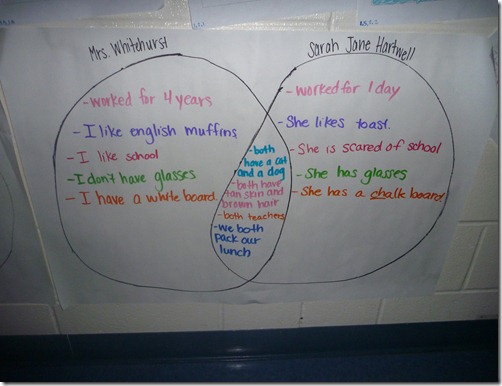 Mrs. Whitehurst
Sarah Jane Hartwell
- worked for 4 years
- I like english muffins
- I like school
- I don't have glasses
- I have a white board
- both
have a cat
and a dog
- both have
tan skin and
brown hair
- both teachers
- we both
pack our
lunch
- worked for 1 day.
- She likes toast.
- She is scared of school
- She has glasses
- She has a chalk board